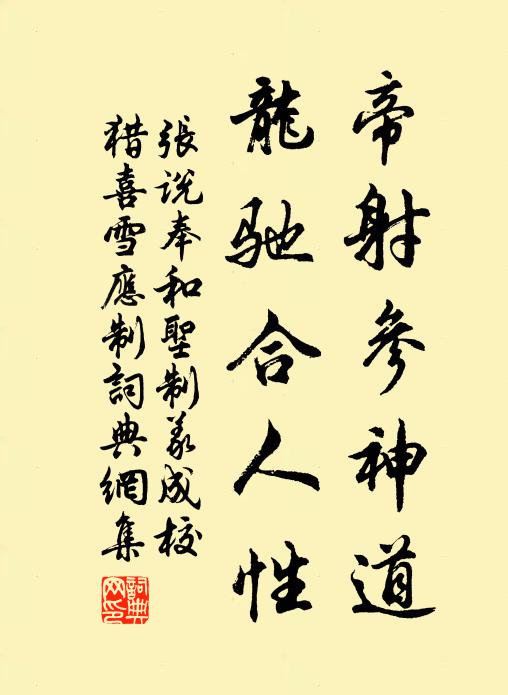 帝射參神道
龍馳合人性
張说奉和聖制義成校
猎喜雪應制詞典網集
詞典
网印